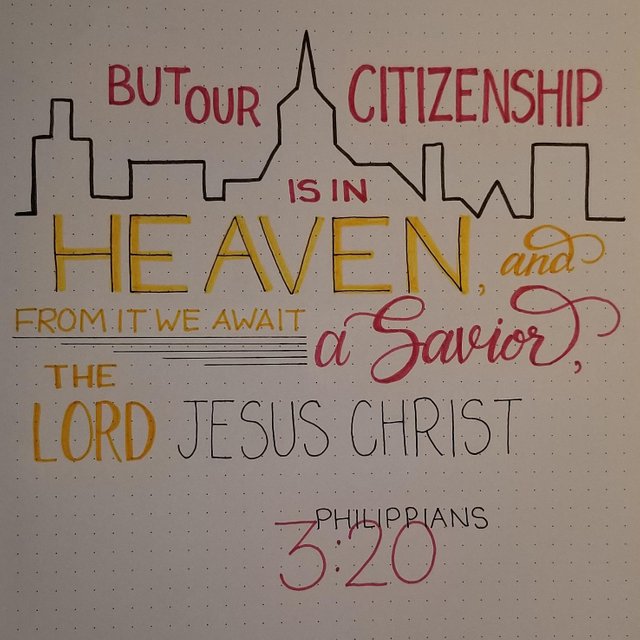 BUT OUR CITIZENSHIP
IS IN
HEAVEN, and
FROM IT WE AWAIT a Savior,
THE
LORD JESUS CHRIST
PHILIPPIANS
3:20